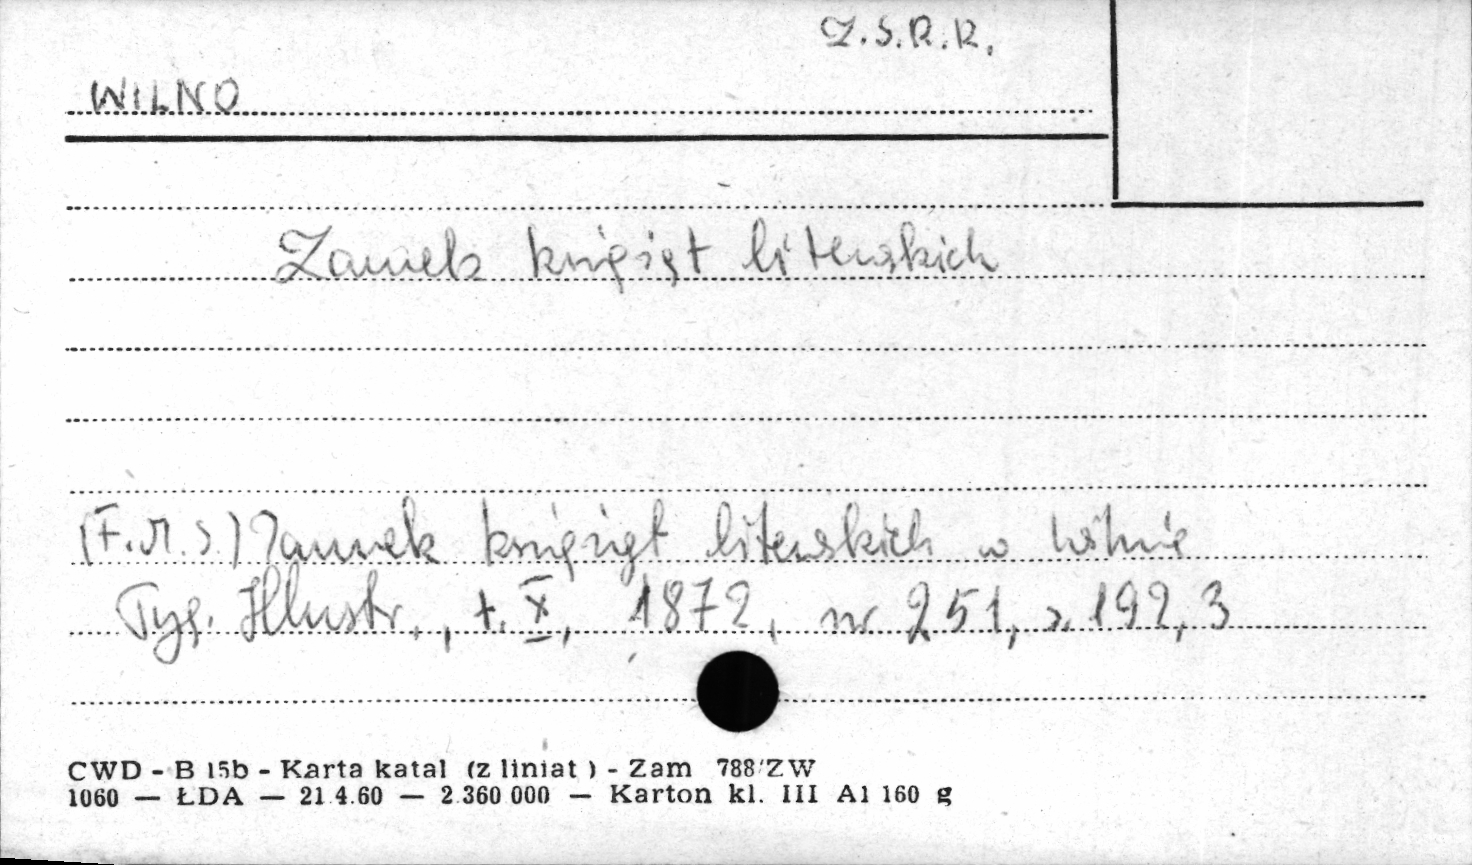 Z.S.R.R.
WILNO
Zamek książąt litewskich
(F.M.S.) Zamek książąt litewskich w Wilnie
Tyg. Illustr., t. X, 1872, nr 251, s. 192,3
CWD - B 15b - Karta katal (z liniat ) - Zam 788/ZW
1060 — ŁDA — 21 4.60 — 2.360 000 — Karton kl. III A1 160 g